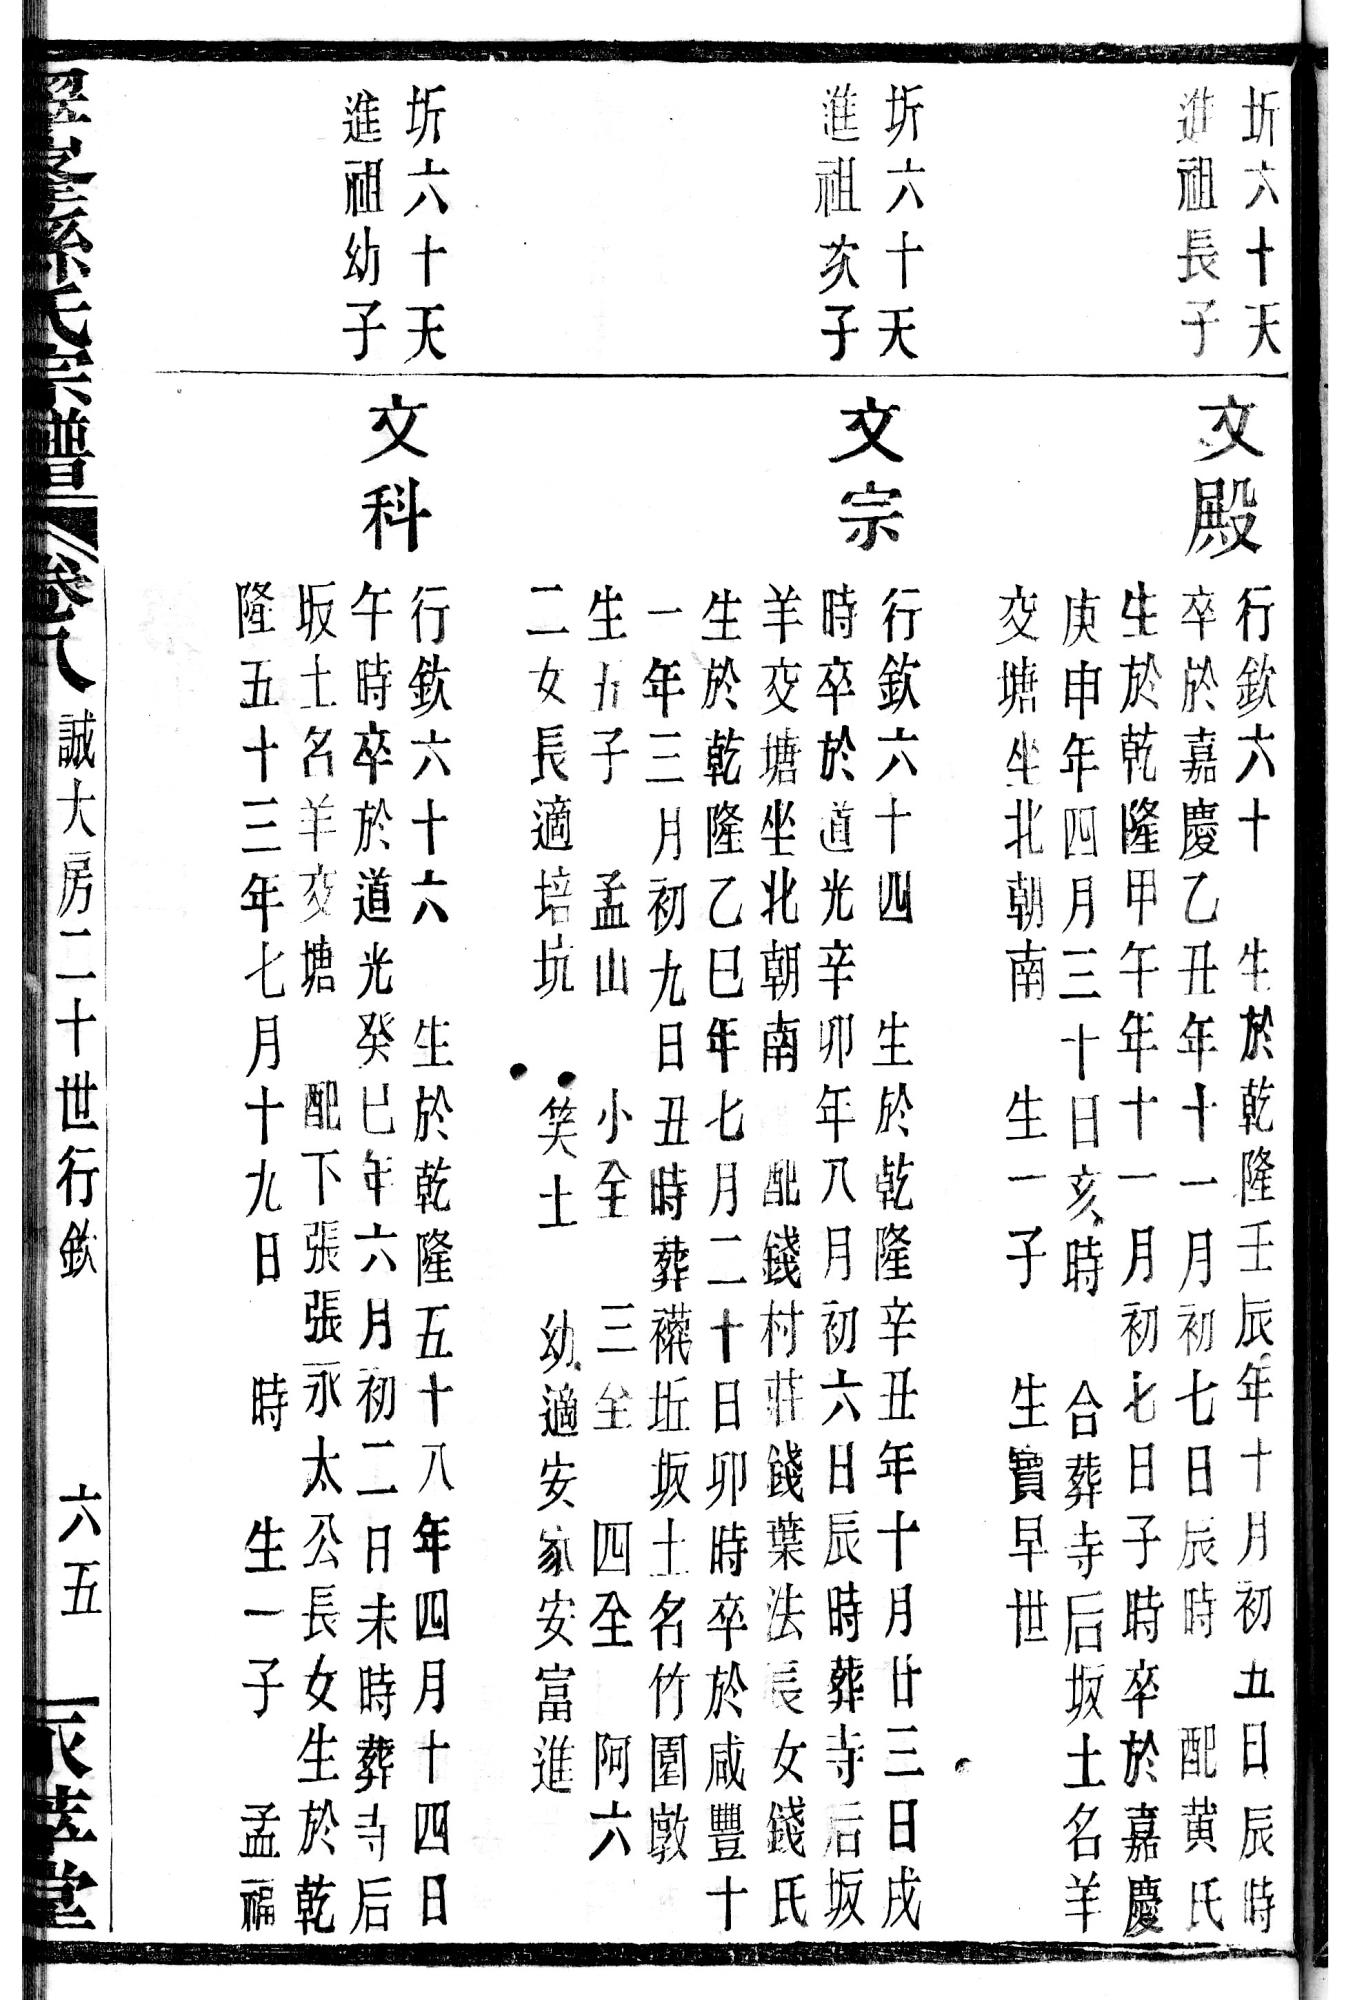 圻六十天
進祖長子
文殿
行欽六十　生於乾隆壬辰年十月初五日辰時
卒於嘉慶乙丑年十一月初七日辰時　配黃氏
生於乾隆甲午年十一月初七日子時卒於嘉慶
庚申年四月三十日亥時　合葬寺后坂土名羊
交塘坐北朝南　生一子　生寶早世
圻六十天
進祖次子
文宗
行欽六十四　生於乾隆辛丑年十月廿三日戌
時卒於道光辛卯年八月初六日辰時葬寺后坂
羊交塘坐北朝南　配錢村莊錢葉法長女錢氏
生於乾隆乙巳年七月二十日卯時卒於咸豐十
一年三月初九日丑時葬橫坵坂土名竹園墩
生五子　孟山　小全　三全　四全　阿六
二女長適培坑　笑土　幼適安家安富進
圻六十天
進祖幼子
文科
行欽六十六　生於乾隆五十八年四月十四日
午時卒於道光癸巳年六月初二日未時葬寺后
坂土名羊交塘　配下張張永太公長女生於乾
隆五十三年七月十九日　時　生一子　孟福
孫氏宗譜　卷八　誠大房二十世行欽　六五　堂